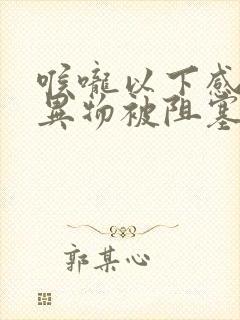 喉嚨以下感
異物被阻塞
郭某心